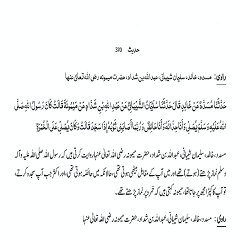 حدیث 370
راوی: مسدد، خالد، سلیمان شیبانی، عبداللہ بن شداد، حضرت میمونہ رضی اللہ تعالیٰ عنہا
حَدَّثَنَا مُسَدَّدٌ عَنْ خَالِدٍ قَالَ حَدَّثَنَا سُلَيْمَانُ الشَّيْبَانِيُّ عَنْ عَبْدِ اللَّهِ بْنِ شَدَّادٍ عَنْ مَيْمُونَةَ قَالَتْ كَانَ رَسُولُ اللَّهِ صَلَّى
اللَّهُ عَلَيْهِ وَسَلَّمَ يُصَلِّي وَأَنَا حِذَائَهُ وَأَنَا حَائِضٌ وَرُبَّمَا أَصَابَنِي ثَوْبُهُ إِذَا سَجَدَ قَالَتْ وَكَانَ يُصَلِّي عَلَى الْخُمْرَةِ
مسدد، خالد، سلیمان شیبانی، عبداللہ بن شداد، حضرت میمونہ رضی اللہ تعالیٰ عنہا روایت کرتی ہیں کہ رسول اللہ صلی اللہ علیہ وآلہ
وسلم نماز پڑھتے (ہوتے) تھے اور میں آپ کے مقابل بیٹھی ہوتی تھی، حالانکہ میں حائضہ ہوتی تھی، اور اکثر جب آپ سجدہ کرتے،
تو آپ کا کپڑا مجھ پر جاتا تھا، میمونہ کہتی ہیں کہ خمرہ پر نماز پڑھتے تھے۔
راوی: مسدد، خالد، سلیمان شیبانی، عبداللہ بن شداد، حضرت میمونہ رضی اللہ تعالیٰ عنہا